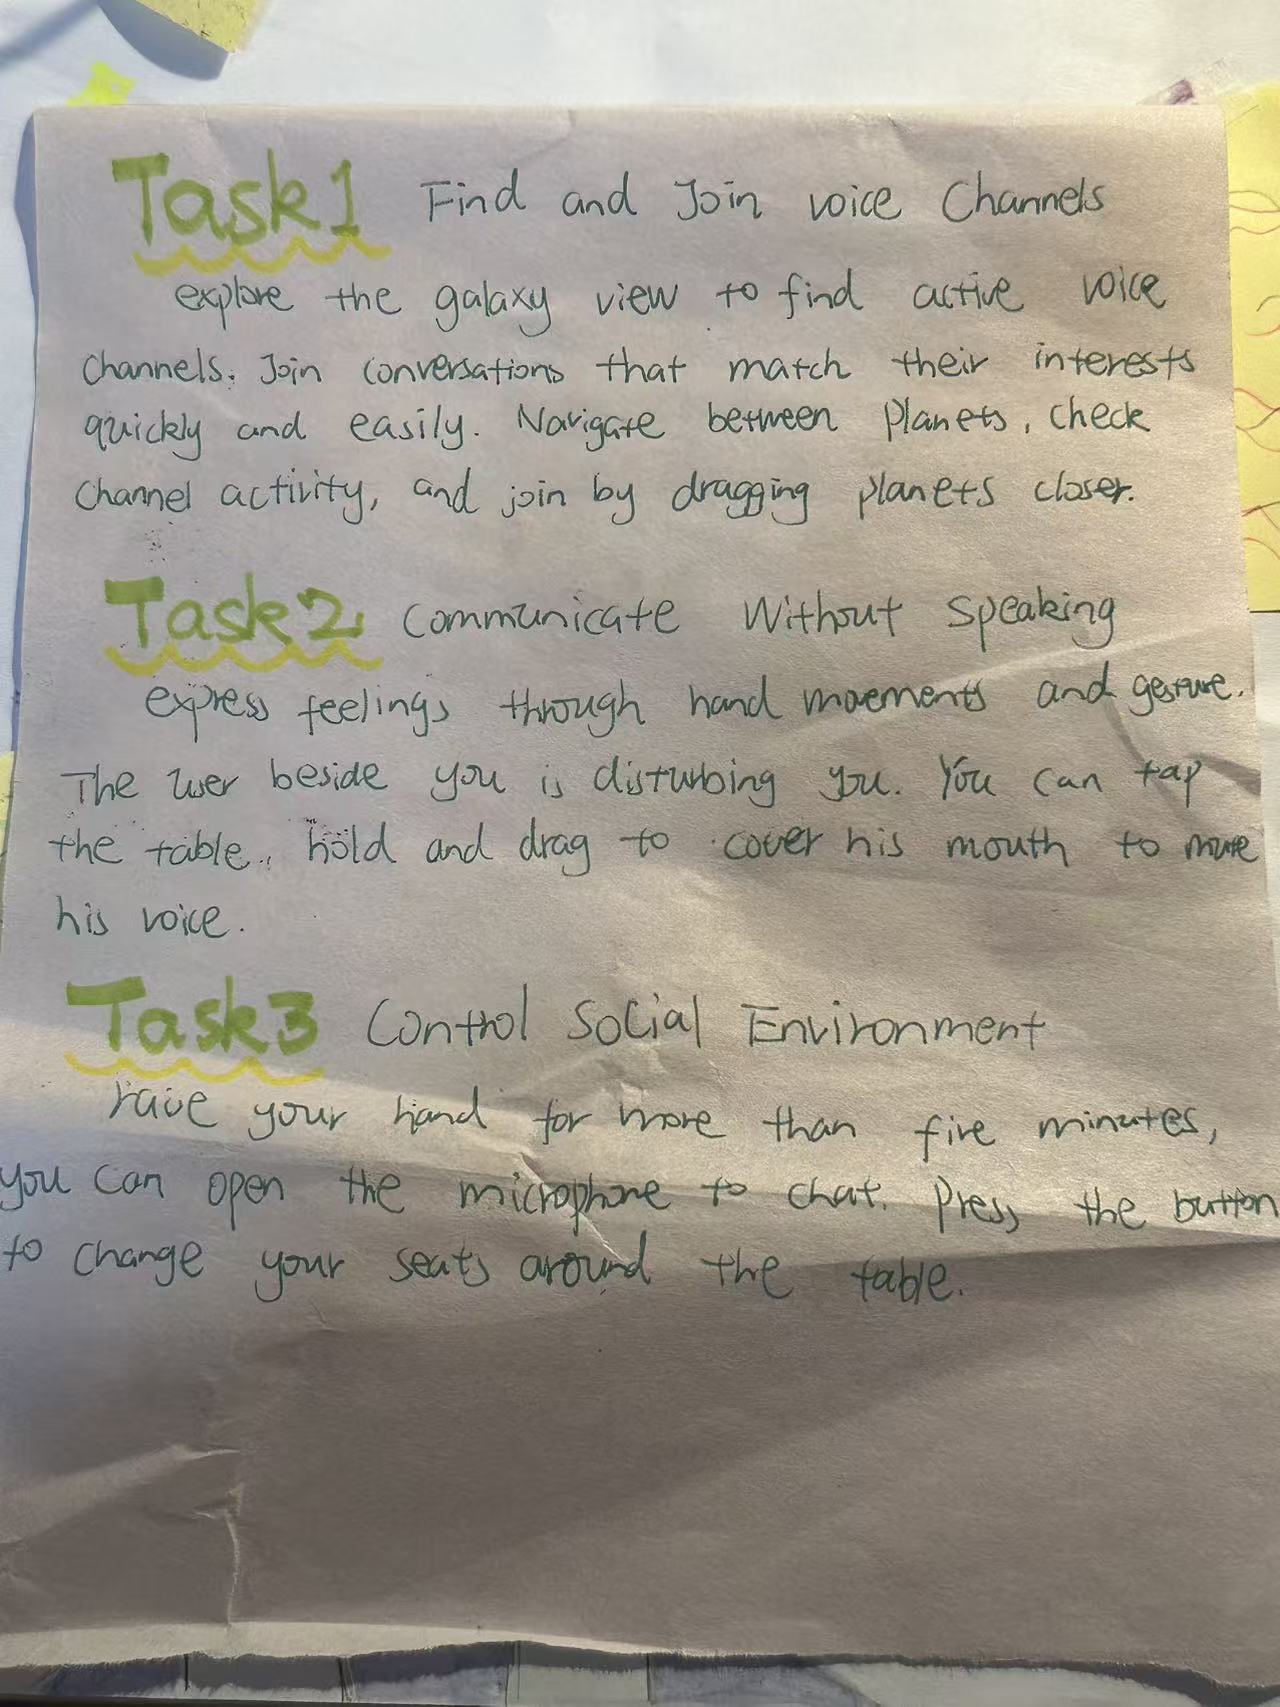 Task1 Find and Join voice Channels
explore the galaxy view to find active voice
Channels. Join conversations that match their interests
quickly and easily. Navigate between planets, check
Channel activity, and join by dragging planets closer.
Task2 Communicate Without Speaking
express feelings through hand movements and gesture.
The user beside you is disturbing you. You can tap
the table, hold and drag to cover his mouth to mute
his voice.
Task3 Control Social Environment
raise your hand for more than five minutes,
you can open the microphone to chat. Press the button
to change your seats around the table.